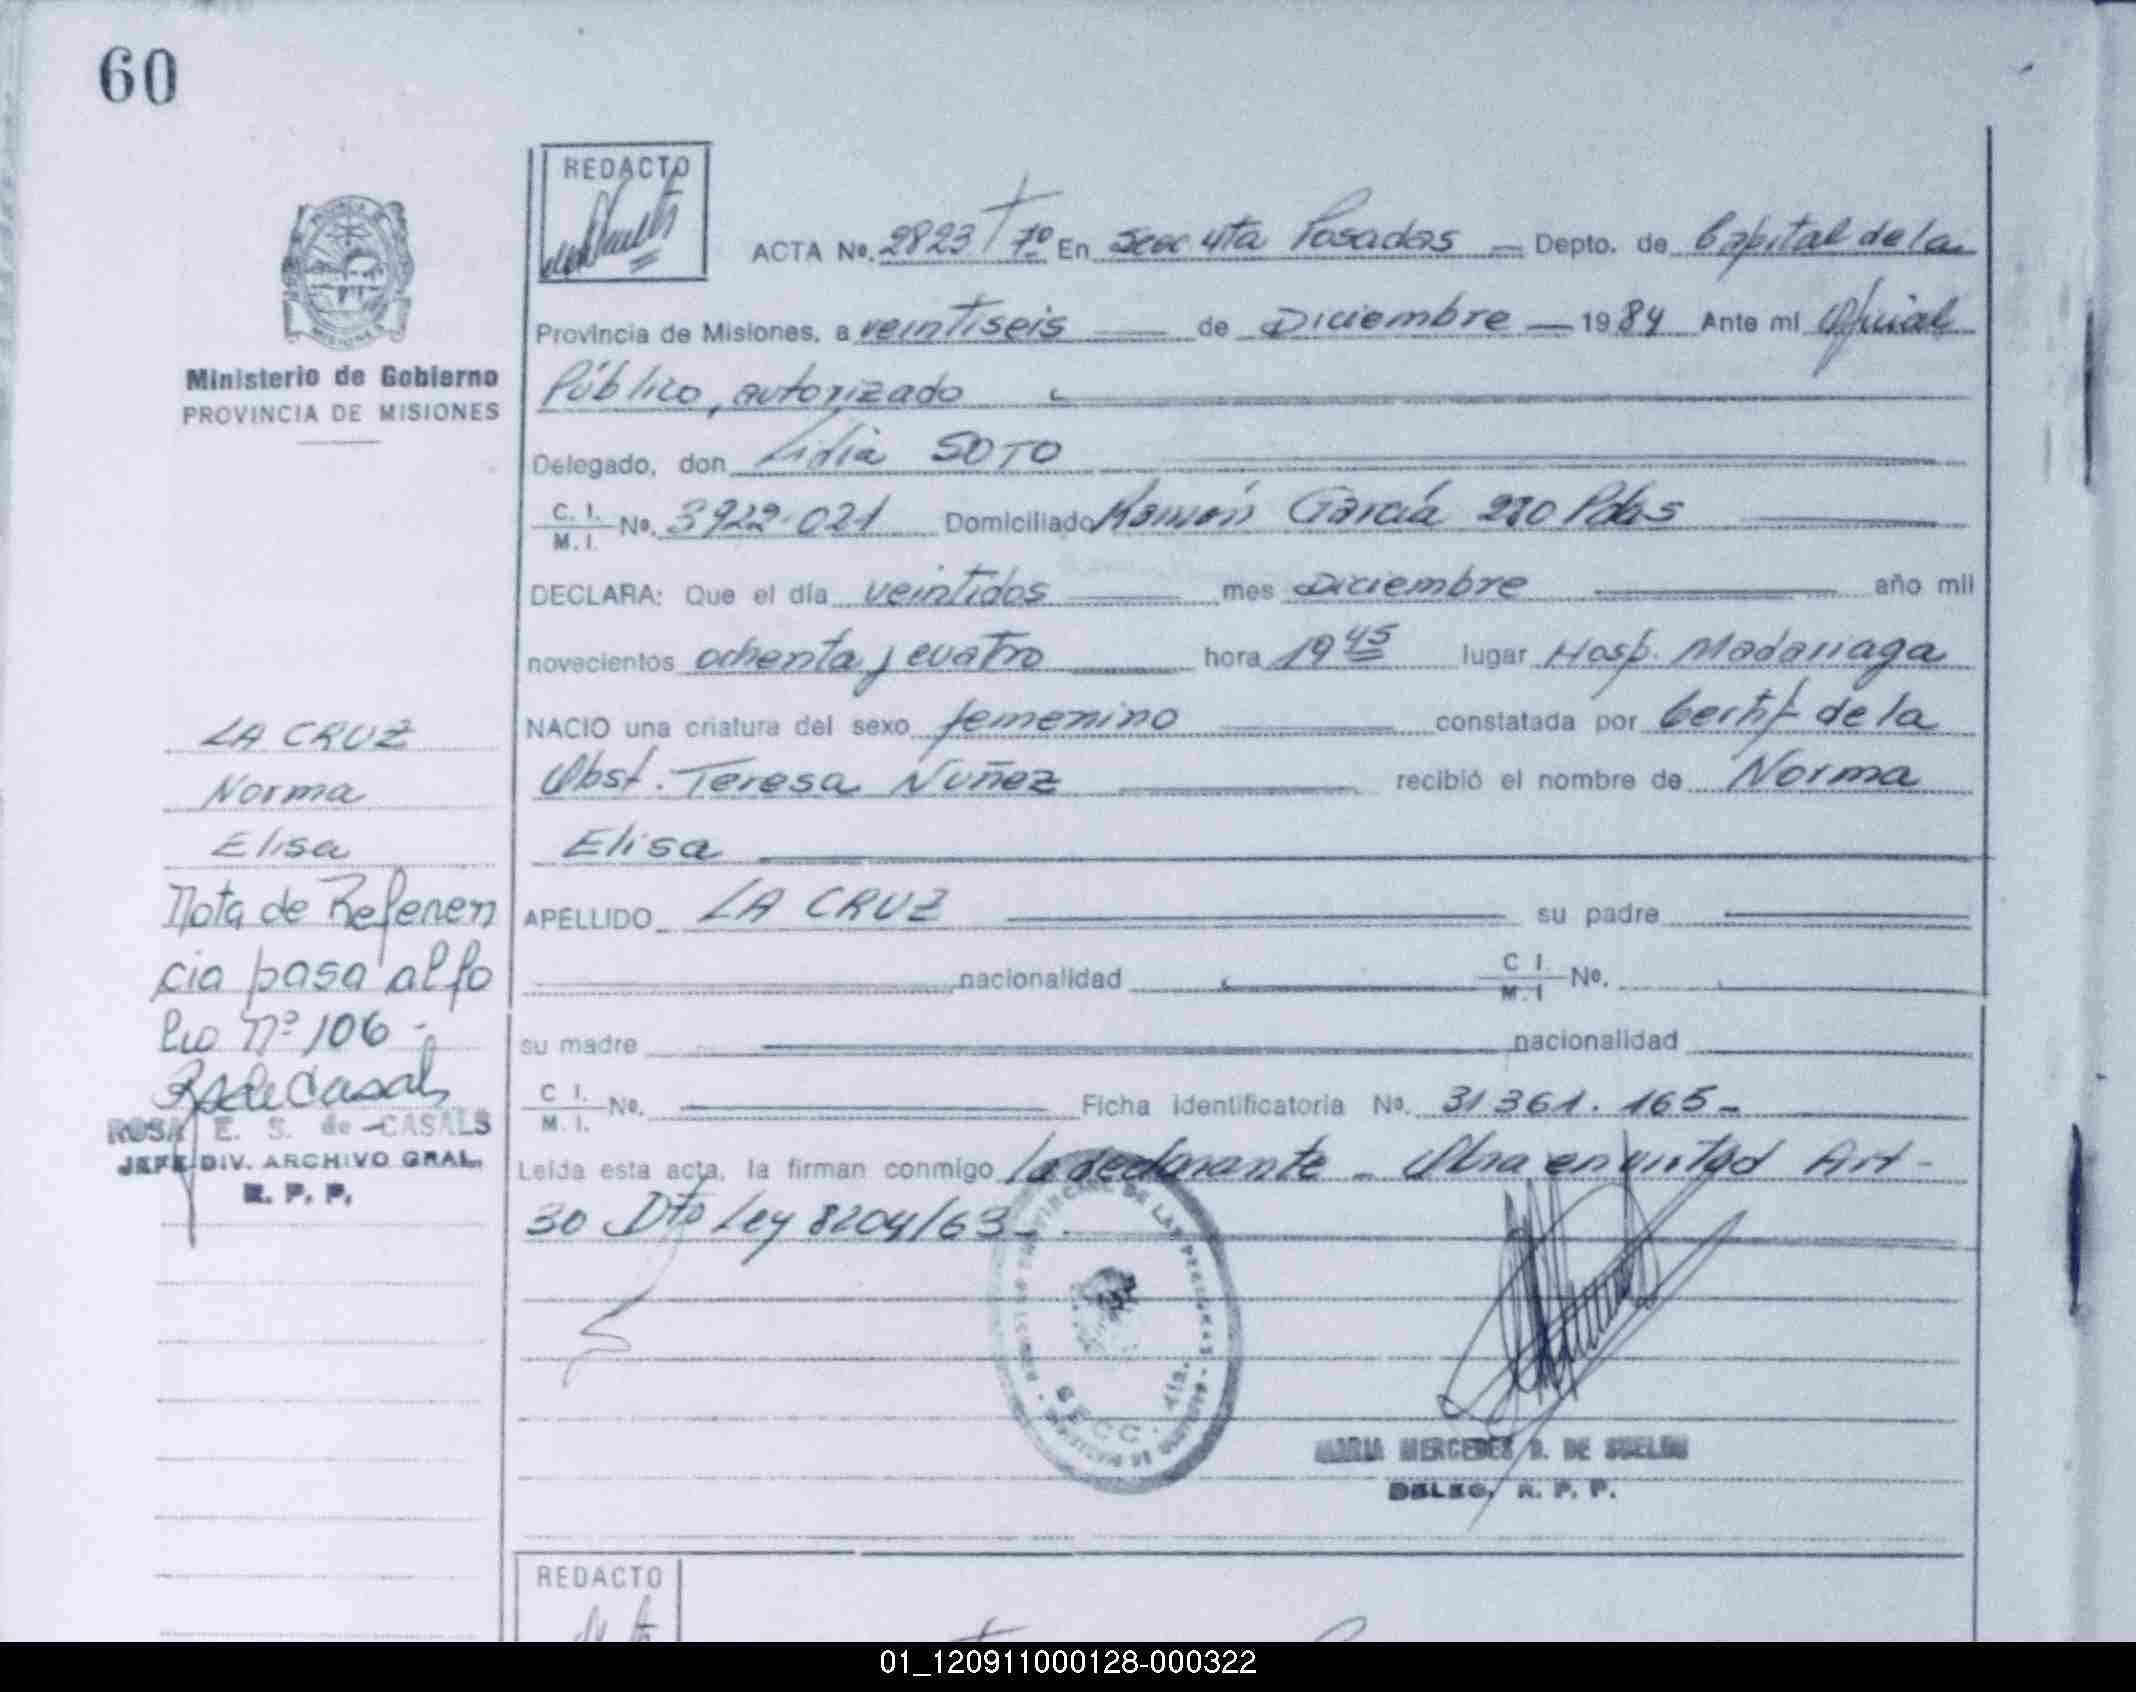 60
REDACTO
ACTA No. 2823 T 7º En Secc 4ta Posadas Depto. de Capital de la
Provincia de Misiones, a veintiseis de Diciembre 1984 Ante mi Oficial
Público, autorizado
Delegado, don Lidia SOTO
C. I. M. I. No. 3922.021 Domiciliado Ramón García 280 Pdas
DECLARA: Que el día veintidos mes Diciembre año mil
novecientos ochenta y cuatro hora 19 45 lugar Hosp. Madariaga
NACIO una criatura del sexo femenino constatada por Certif de la
Obst. Teresa Nuñez recibió el nombre de Norma
Elisa
APELLIDO LA CRUZ su padre
nacionalidad C I. M. I No.
su madre nacionalidad
C I. M. I. No. Ficha identificatoria No. 31 361. 165-
Leída esta acta, la firman conmigo la declarante - Obra en virtud Art-
30 Dto Ley 8204/63-
SECC. 4ta.
MARIA MERCEDES DE
DELEG. R. P. P.
Ministerio de Gobierno
PROVINCIA DE MISIONES
LA CRUZ
Norma
Elisa
Nota de Referen
cia pasa al fo
lio Nº 106-
R S de Casals
ROSA E. S. de CASALS
JEFE DIV. ARCHIVO GRAL.
R. P. P.
REDACTO
01_120911000128-000322